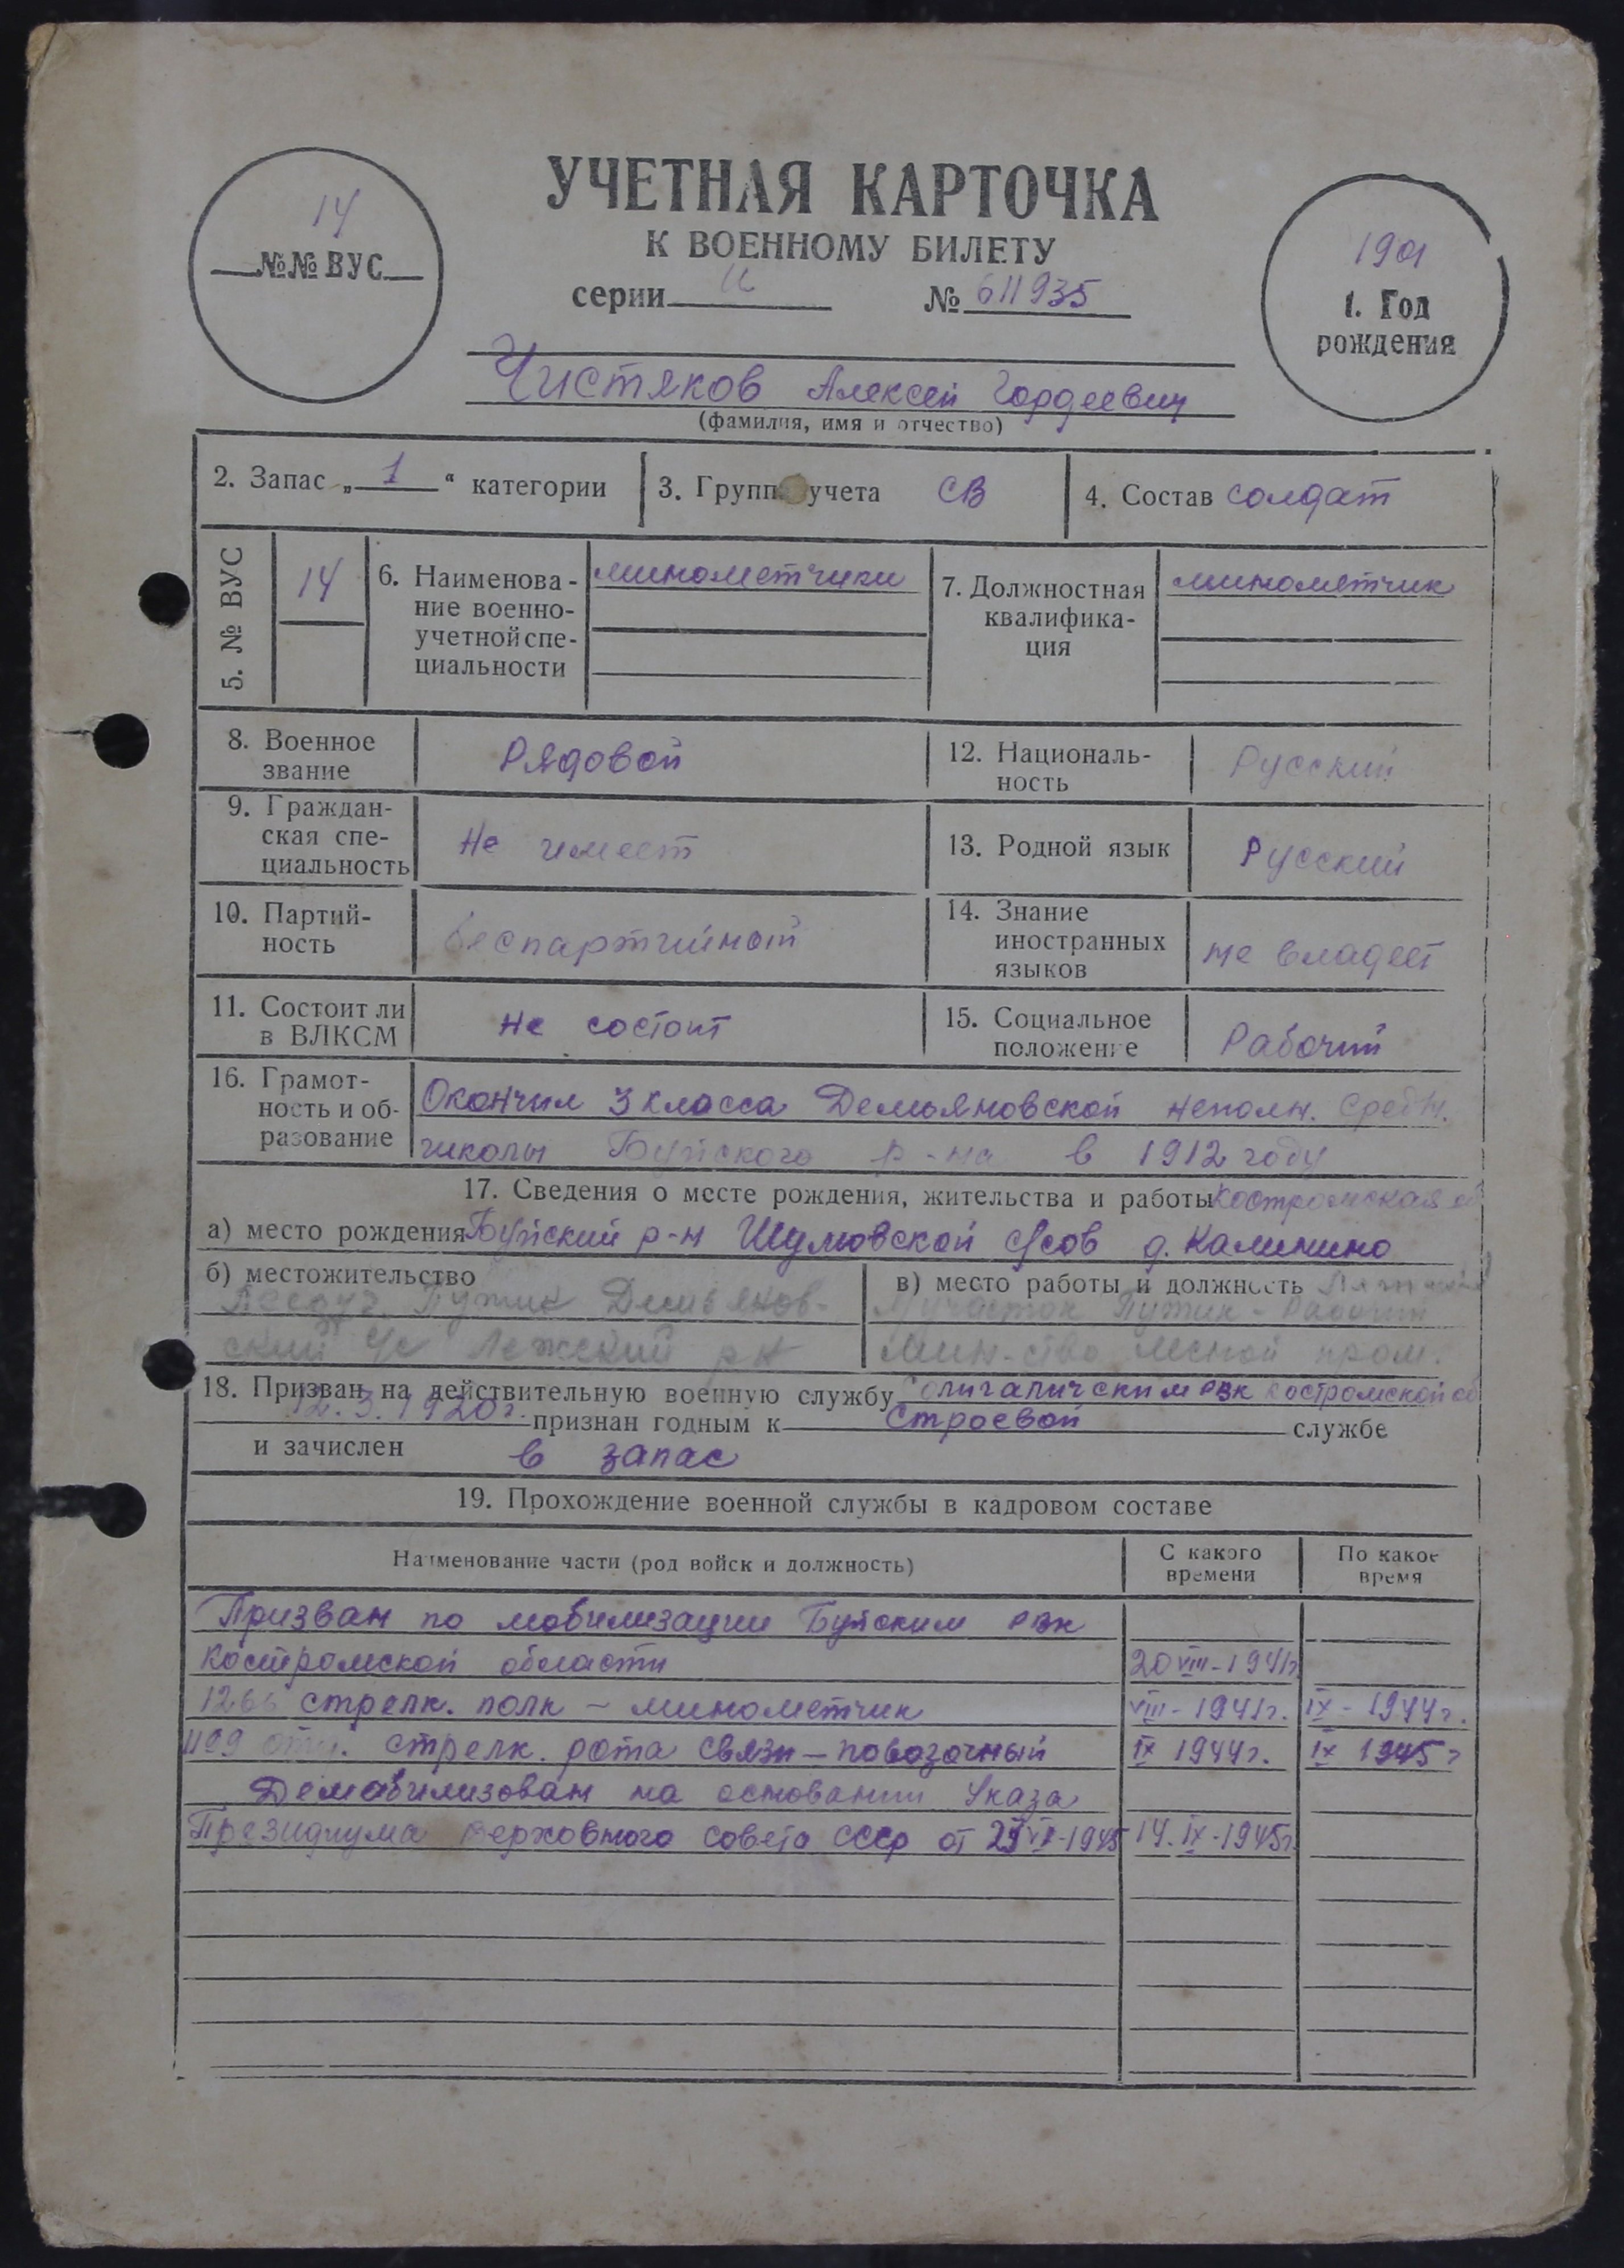 УЧЕТНАЯ КАРТОЧКА
К ВОЕННОМУ БИЛЕТУ
14
№№ ВУС
серии И № 611935
1901
1. Год
рождения
Чистяков Алексей Гордеевич
(фамилия, имя и отчество)
2. Запас „1“ категории
3. Групп учета СВ
4. Состав солдат
5. № ВУС
14
6. Наименова-
ние военно-
учетной спе-
циальности
минометчики
7. Должностная
квалифика-
ция
минометчик
8. Военное
звание
Рядовой
12. Националь-
ность
Русский
9. Граждан-
ская спе-
циальность
Не имеет
13. Родной язык
Русский
10. Партий-
ность
беспартийный
14. Знание
иностранных
языков
не владеет
11. Состоит ли
в ВЛКСМ
не состоит
15. Социальное
положение
Рабочий
16. Грамот-
ность и об-
разование
Окончил 3 класса Демьяновской неполн. средн.
школы Буйского р-на в 1912 году
17. Сведения о месте рождения, жительства и работы Костромская об
а) место рождения Буйский р-н Шушовской с/сов д. Калинино
б) местожительство
Демьянов-
ский с/с р-н
в) место работы и должность
участок Рабочий
Мин-ство лесной пром.
18. Призван на действительную военную службу Солигаличским РВК Костромской об
12.3.1920г. признан годным к строевой службе
и зачислен в запас
19. Прохождение военной службы в кадровом составе
Наименование части (род войск и должность)
С какого
времени
По какое
время
Призван по мобилизации Буйским РВК
Костромской области 20 VIII-1941г
1266 стрелк. полк - минометчик VIII-1941г. IX-1944г.
1199 отд. стрелк. рота связи - повозочный IX 1944г. IX 1945г
Демобилизован на основании Указа
Президиума верховного совета СССР от 25 VI-1945 14.IX-1945г.